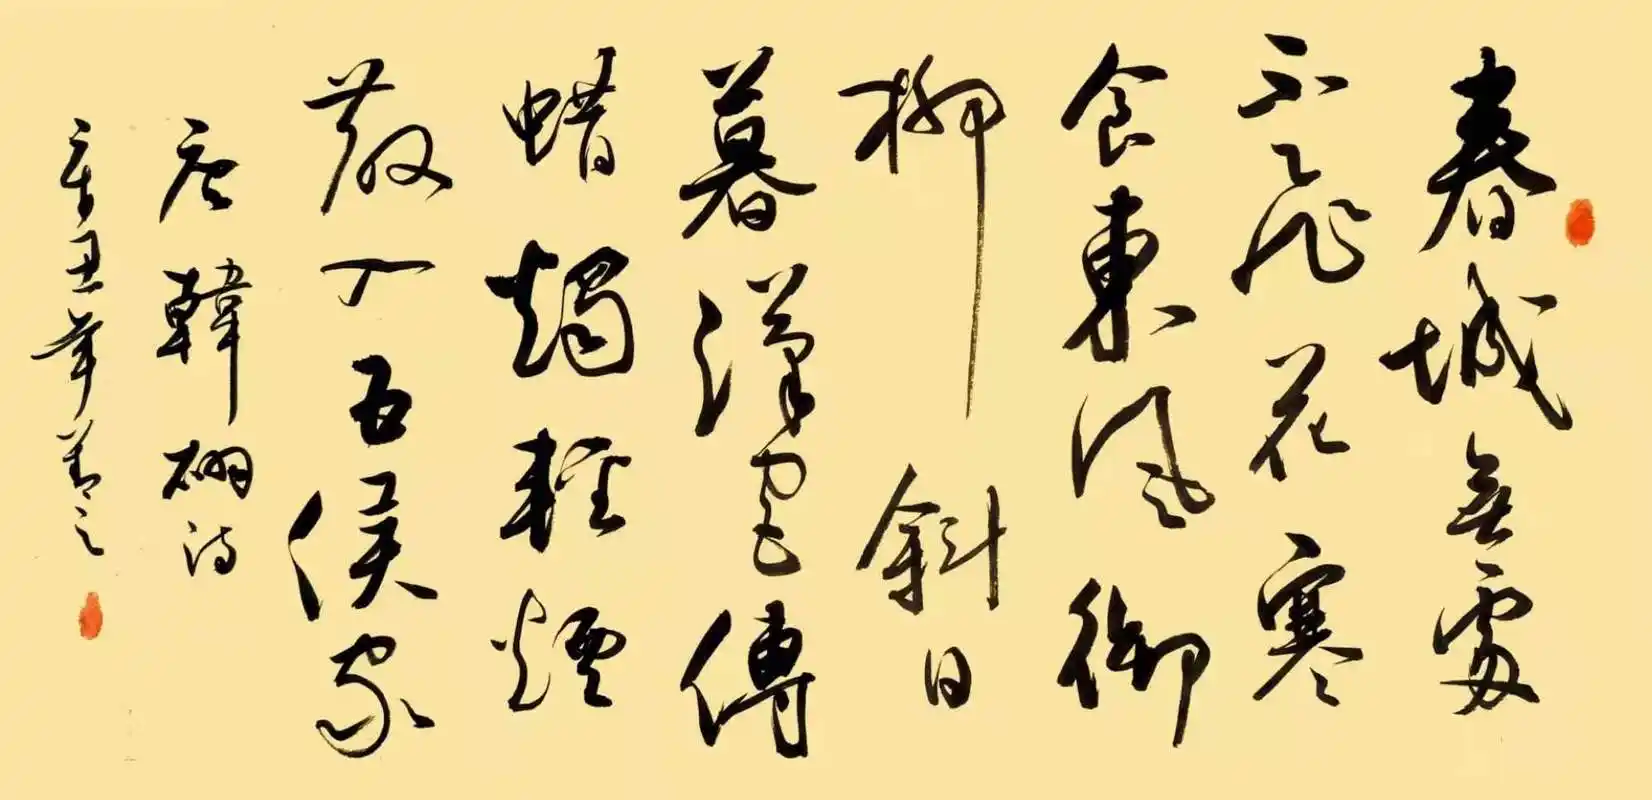 春城無處
不飛花寒
食東風御
柳斜日
暮漢宮傳
蜡燭輕煙
散入五侯家
唐韓翃詩
辛丑年